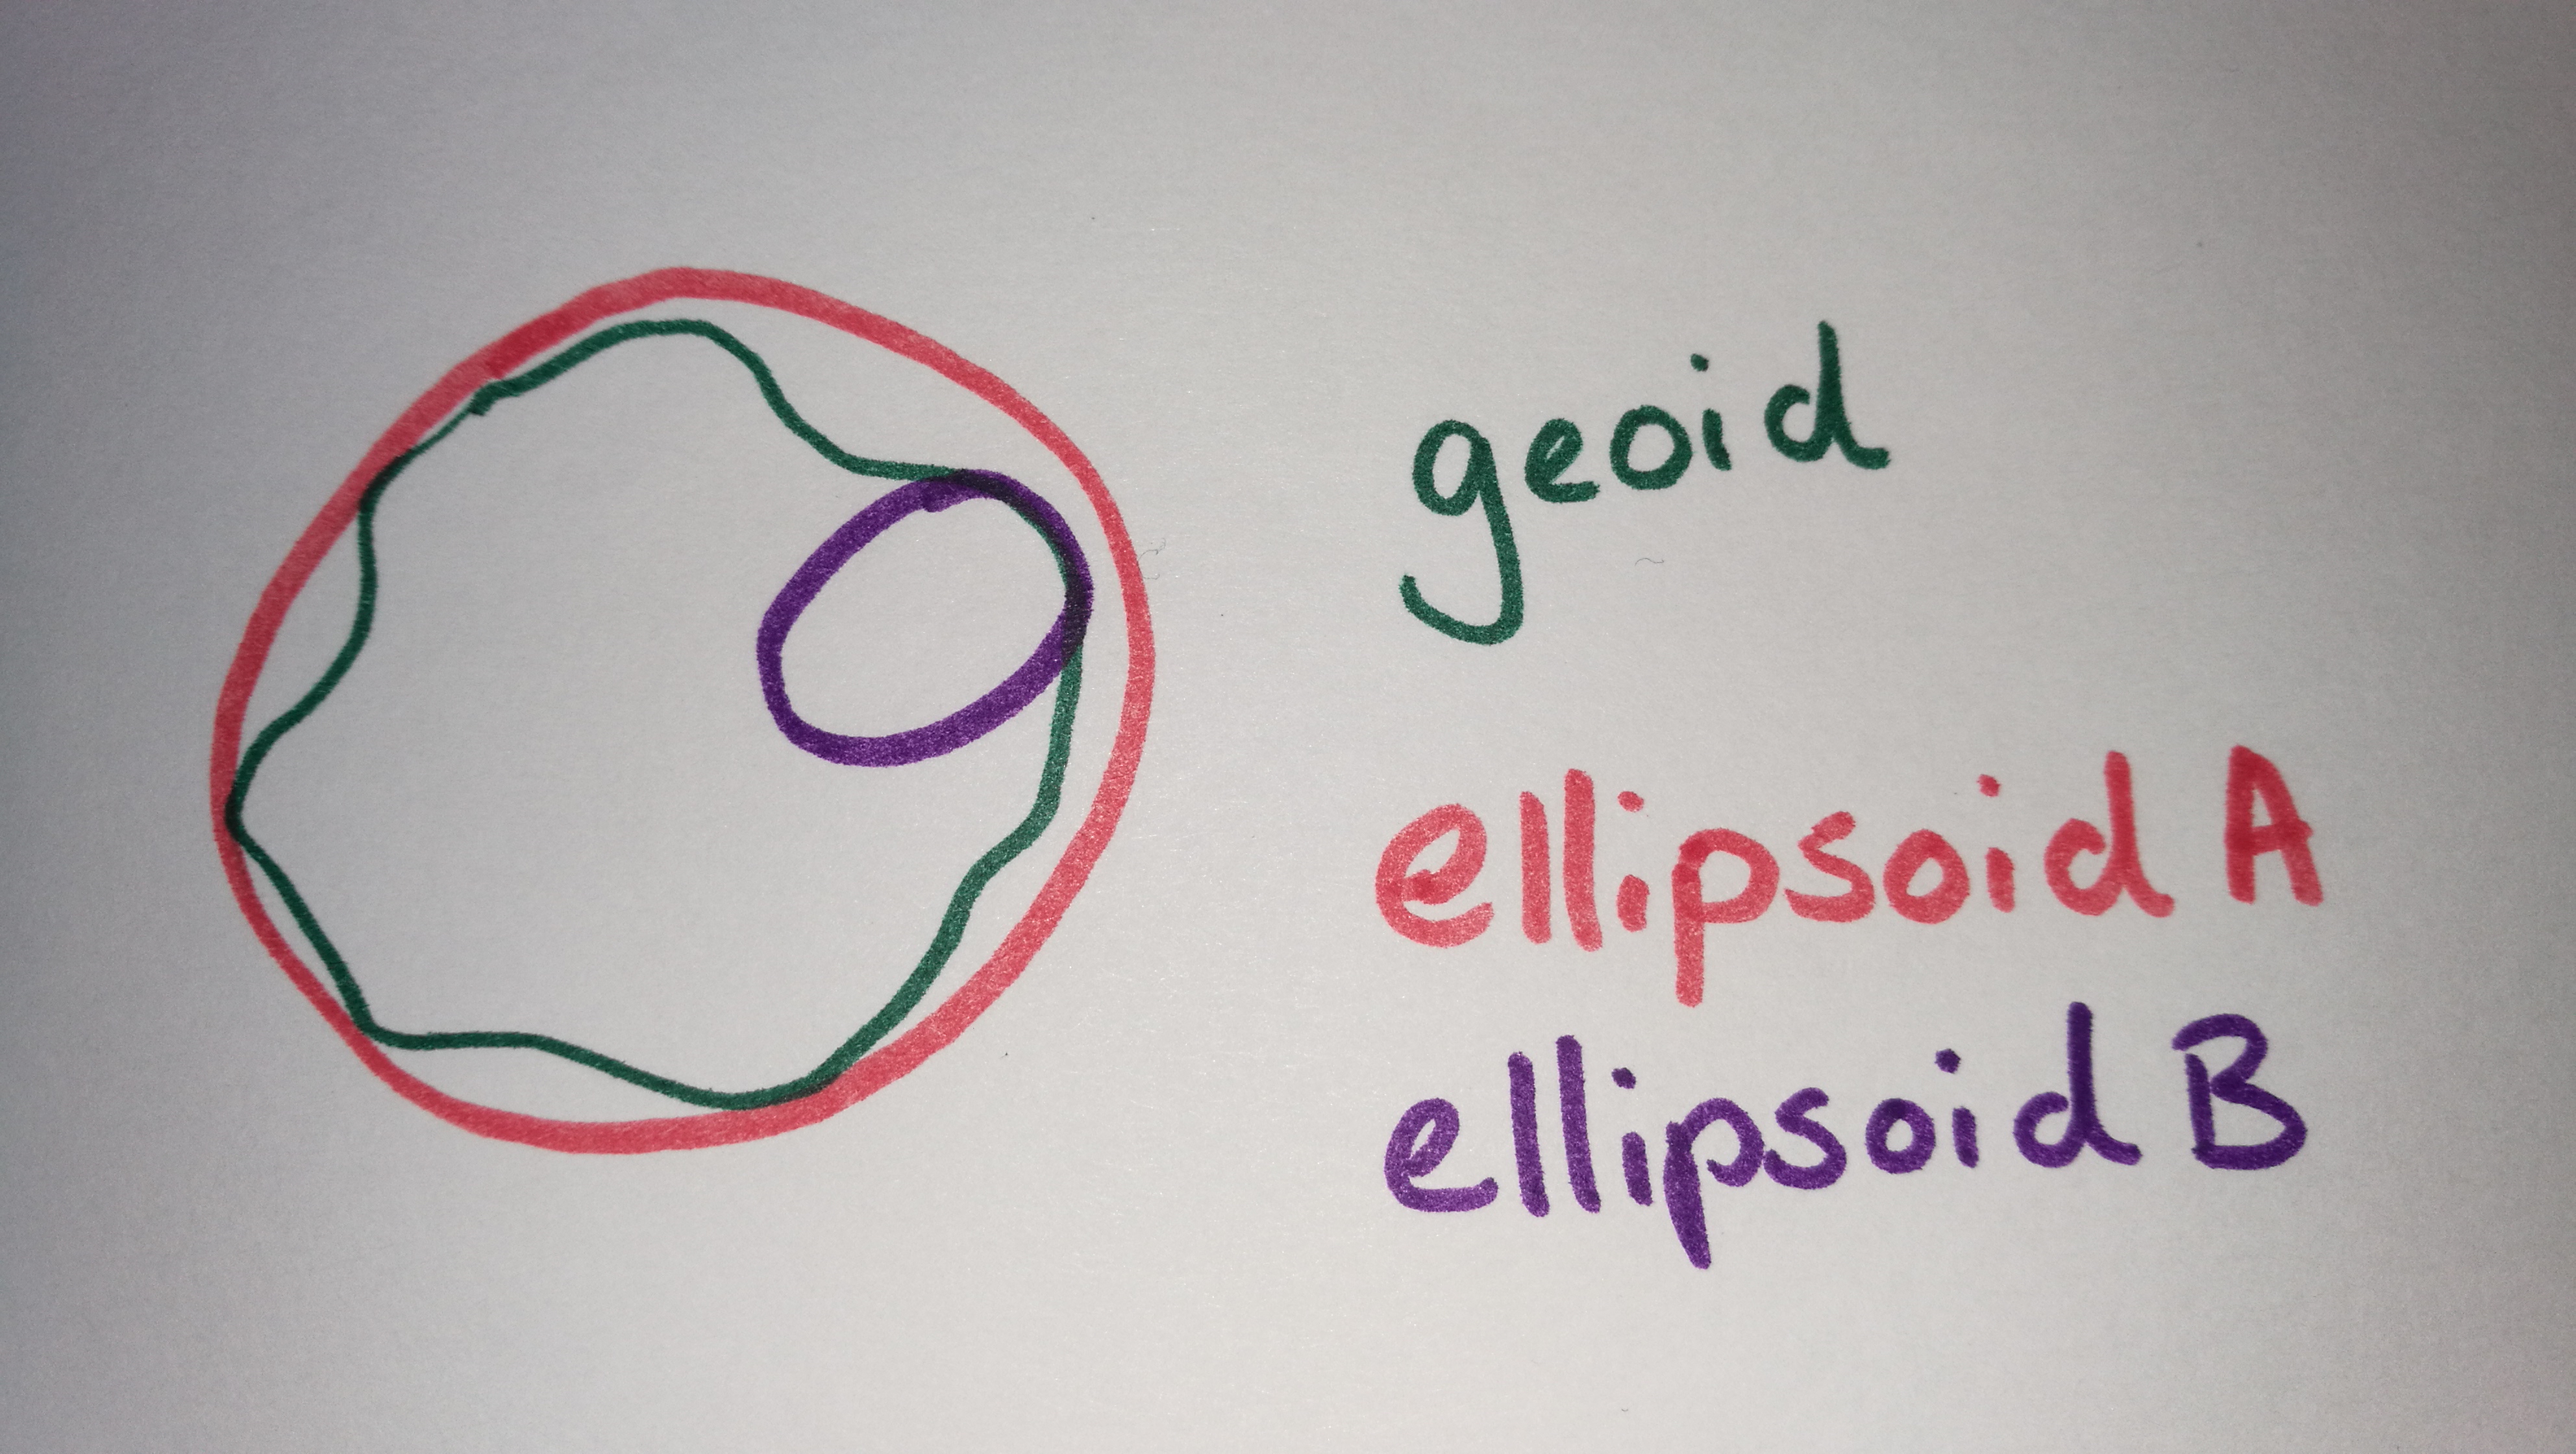 geoid
ellipsoid A
ellipsoid B